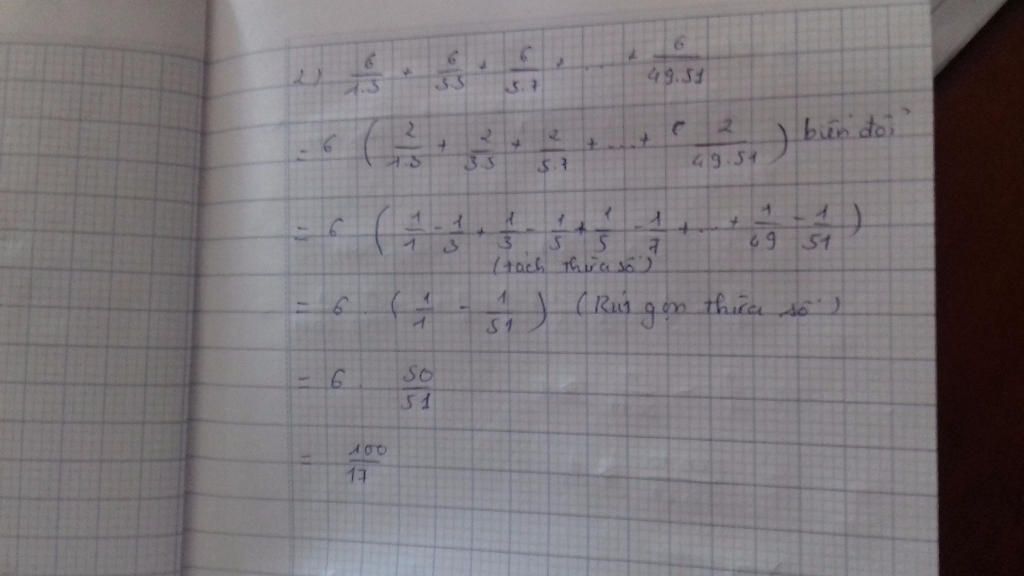 2) 6/1.3 + 6/3.5 + 6/5.7 + ... + 6/49.51
= 6 ( 2/1.3 + 2/3.5 + 2/5.7 + ... + 2/49.51 ) biến đổi
= 6 ( 1/1 - 1/3 + 1/3 - 1/5 + 1/5 - 1/7 + ... + 1/49 - 1/51 )
(tách thừa số)
= 6 . ( 1/1 - 1/51 ) (Rút gọn thừa số)
= 6 . 50/51
= 100/17